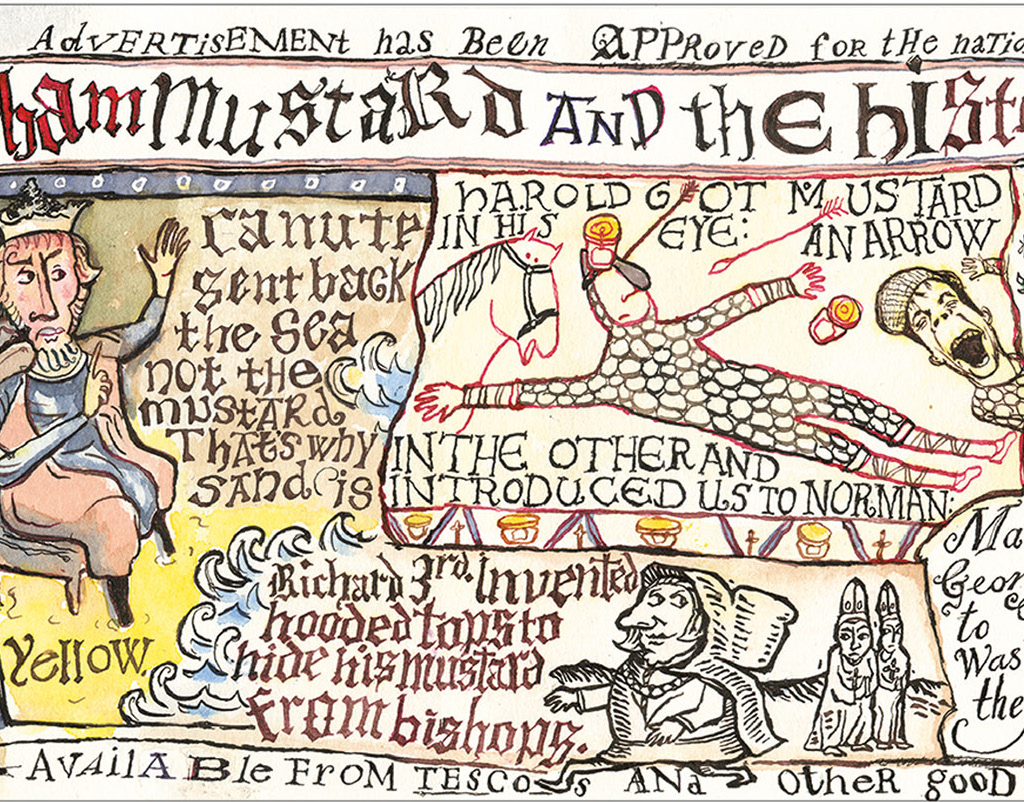 AdVERTisEMENt has Been APPRoveD foR tHe natio
ham MustaRd AND thE hISt
canute
sent back
the sea
not the
mustard
That's why
sand is
Yellow.
HAROLD GOT MUSTARD
IN HIS EYE: AN ARROW
IN THE OTHER AND
INTRODUCED US TO NORMAN:
Richard 3rd. Invented
hooded tops to
hide his mustard
from bishops.
Ma
Georg
to
was
the
AvAilABle FroM TESCOs ANd otheR good